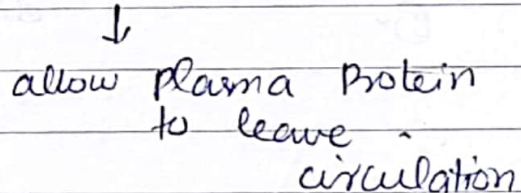 ↓
allow plasma Protein
to leave
circulation